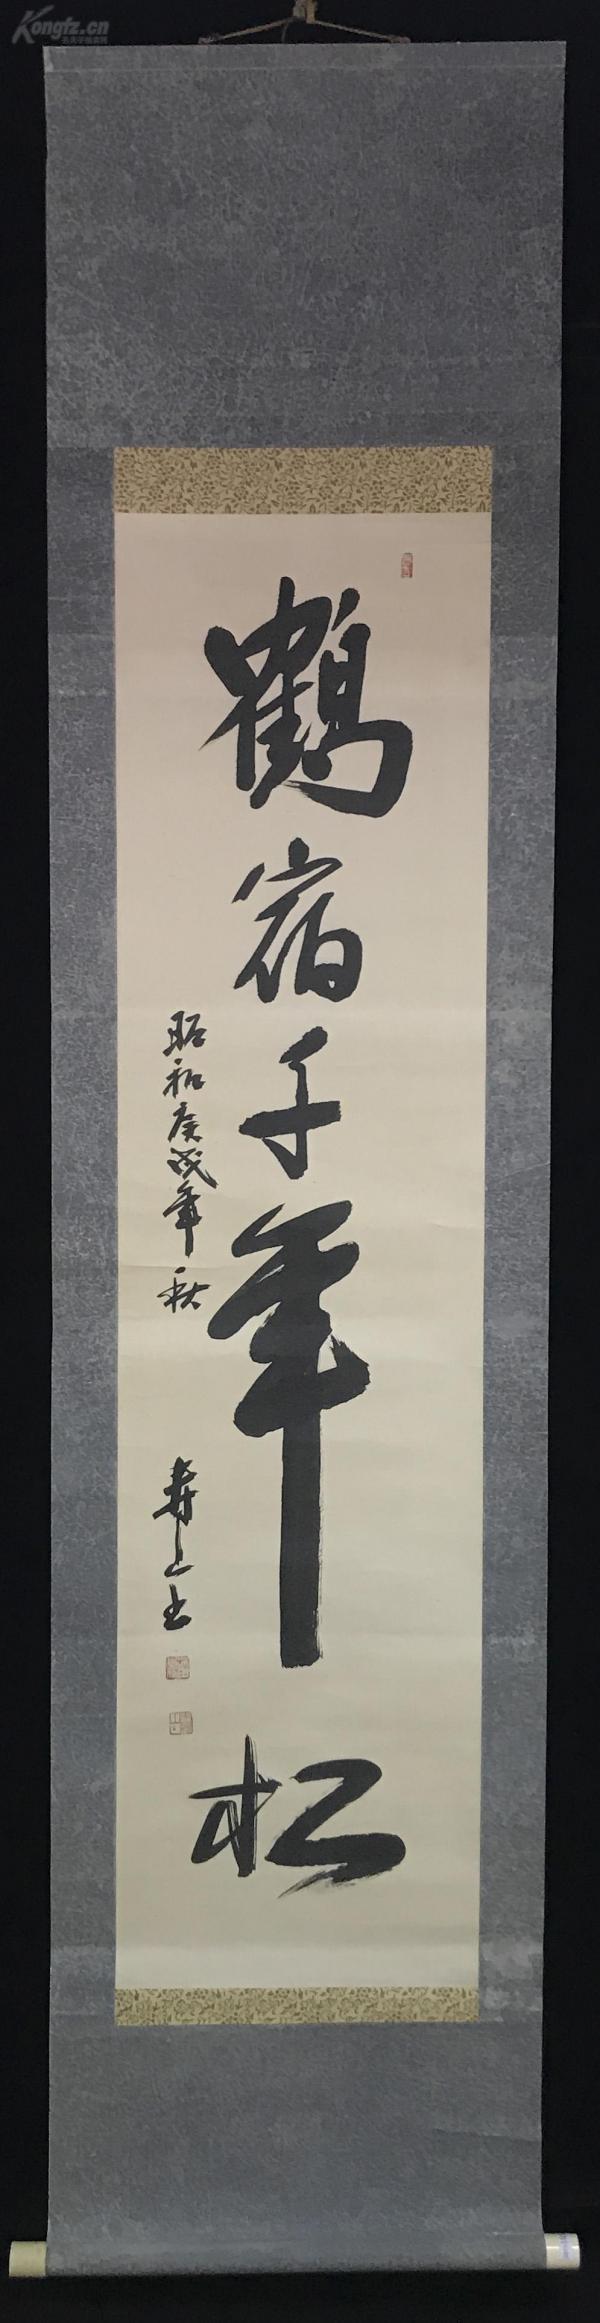 Kongfz.cn
鶴宿千年松
昭和庚戌年秋
壽山書